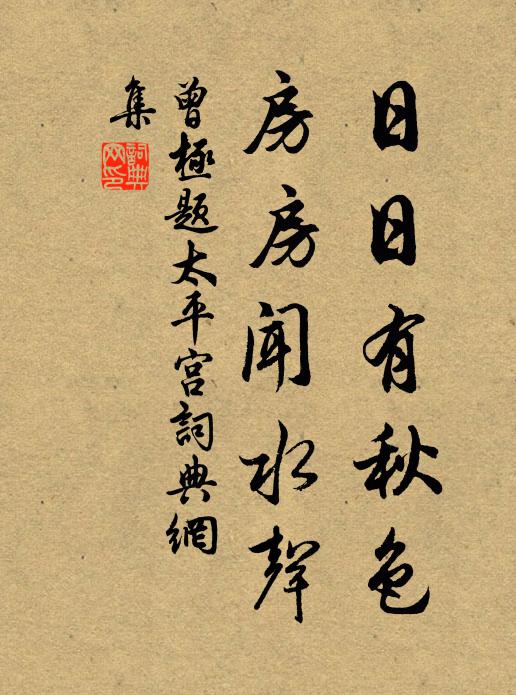 日日有秋色
房房闻水聲
曾極题太平宫詞典網
集
詞典網印